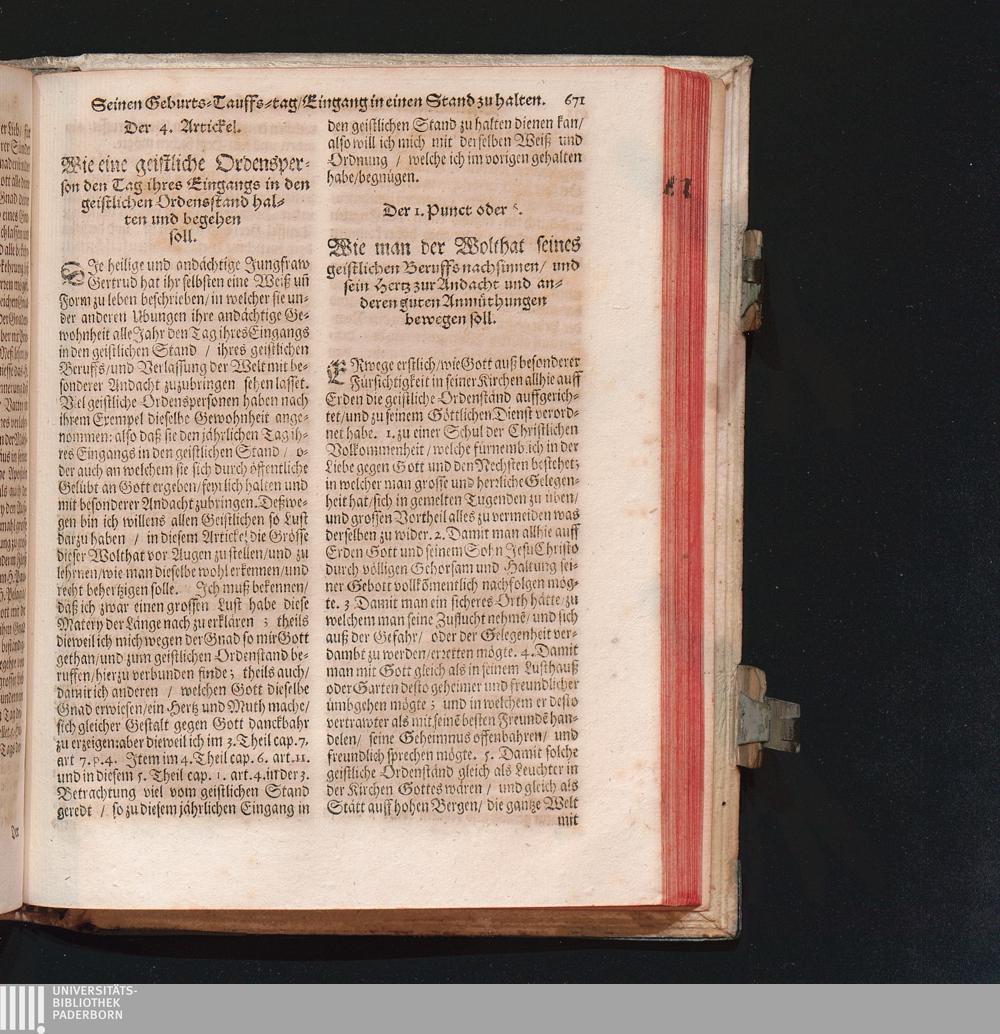 Seinen Geburts-Tauffs-tag/Eingang in einen Stand zu halten. 671
Der 4. Artickel.
Wie eine geistliche Ordensper-
son den Tag ihres Eingangs in den
geistlichen Ordensstand hal-
ten und begehen
soll.
SJe heilige und andächtige Jungfraw
Gertrud hat ihr selbsten eine Weiß uñ
Form zu leben beschrieben/ in welcher sie un-
der anderen Ubungen ihre andächtige Ge-
wohnheit alle Jahr den Tag ihres Eingangs
in den geistlichen Stand / ihres geistlichen
Beruffs/und Verlassung der Welt mit be-
sonderer Andacht zuzubringen sehen lasset.
Viel geistliche Ordenspersonen haben nach
ihrem Exempel dieselbe Gewohnheit ange-
nommen: also daß sie den jährlichen Tag ih-
res Eingangs in den geistlichen Stand / o-
der auch an welchem sie sich durch öffentliche
Gelübt an Gott ergeben/ feyrlich halten und
mit besonderer Andacht zubringen. Deßwe-
gen bin ich willens allen Geistlichen so Lust
darzu haben / in diesem Artickel die Grösse
dieser Wolthat vor Augen zu stellen/ und zu
lehrnen/wie man dieselbe wohl erkennen/und
recht behertzigen solle. Jch muß bekennen/
daß ich zwar einen grossen Lust habe diese
Matery der Länge nach zu erklären ; theils
dieweil ich mich wegen der Gnad so mir Gott
gethan/und zum geistlichen Ordenstand be-
ruffen/hierzu verbunden finde; theils auch/
damit ich anderen / welchen Gott dieselbe
Gnad erwiesen/ein Hertz und Muth mache/
sich gleicher Gestalt gegen Gott danckbahr
zu erzeigen: aber dieweil ich im 3. Theil cap. 7.
art 7. p. 4. Jtem im 4. Theil cap. 6. art. 11.
und in diesem 5. Theil cap. 1. art. 4. in der 3.
Betrachtung viel vom geistlichen Stand
geredt / so zu diesem jährlichen Eingang in
den geistlichen Stand zu halten dienen kan/
also will ich mich mit derselben Weiß und
Ordnung / welche ich im vorigen gehalten
habe/begnügen.
Der 1. Punct oder §.
Wie man der Wolthat seines
geistlichen Beruffs nachsinnen/ und
sein Hertz zur Andacht und an-
deren guten Anmüthungen
bewegen soll.
ERwege erstlich/wie Gott auß besonderer
Fürsichtigkeit in seiner Kirchen allhie auff
Erden die geistliche Ordenständ auffgerich-
tet/und zu seinem Göttlichen Dienst verord-
net habe. 1. zu einer Schul der Christlichen
Volkommenheit/ welche fürnemblich in der
Liebe gegen Gott und den Nechsten bestehet;
in welcher man grosse und herrliche Gelegen-
heit hat/sich in gemelten Tugenden zu üben/
und grossen Vortheil alles zu vermeiden was
derselben zu wider. 2. Damit man allhie auff
Erden Gott und seinem Sohn Jesu Christo
durch völligen Gehorsam und Haltung sei-
ner Gebott vollkõmentlich nachfolgen mög-
te. 3 Damit man ein sicheres Orth hätte/zu
welchem man seine Zuflucht nehmẽ/ und sich
auß der Gefahr/ oder der Gelegenheit ver-
dambt zu werden/ erretten mögte. 4. Damit
man mit Gott gleich als in seinem Lusthauß
oder Garten desto geheimer und freundlicher
umbgehen mögte ; und in welchem er desto
vertrawter als mit seinẽ besten Freundẽ han-
delen/ seine Geheimnus offenbahren/ und
freundlich sprechen mögte. 5. Damit solche
geistliche Ordenständ gleich als Leuchter in
der Kirchen Gottes wären / und gleich als
Stätt auff hohen Bergen/ die gantze Welt
mit
UNIVERSITÄTS-
BIBLIOTHEK
PADERBORN